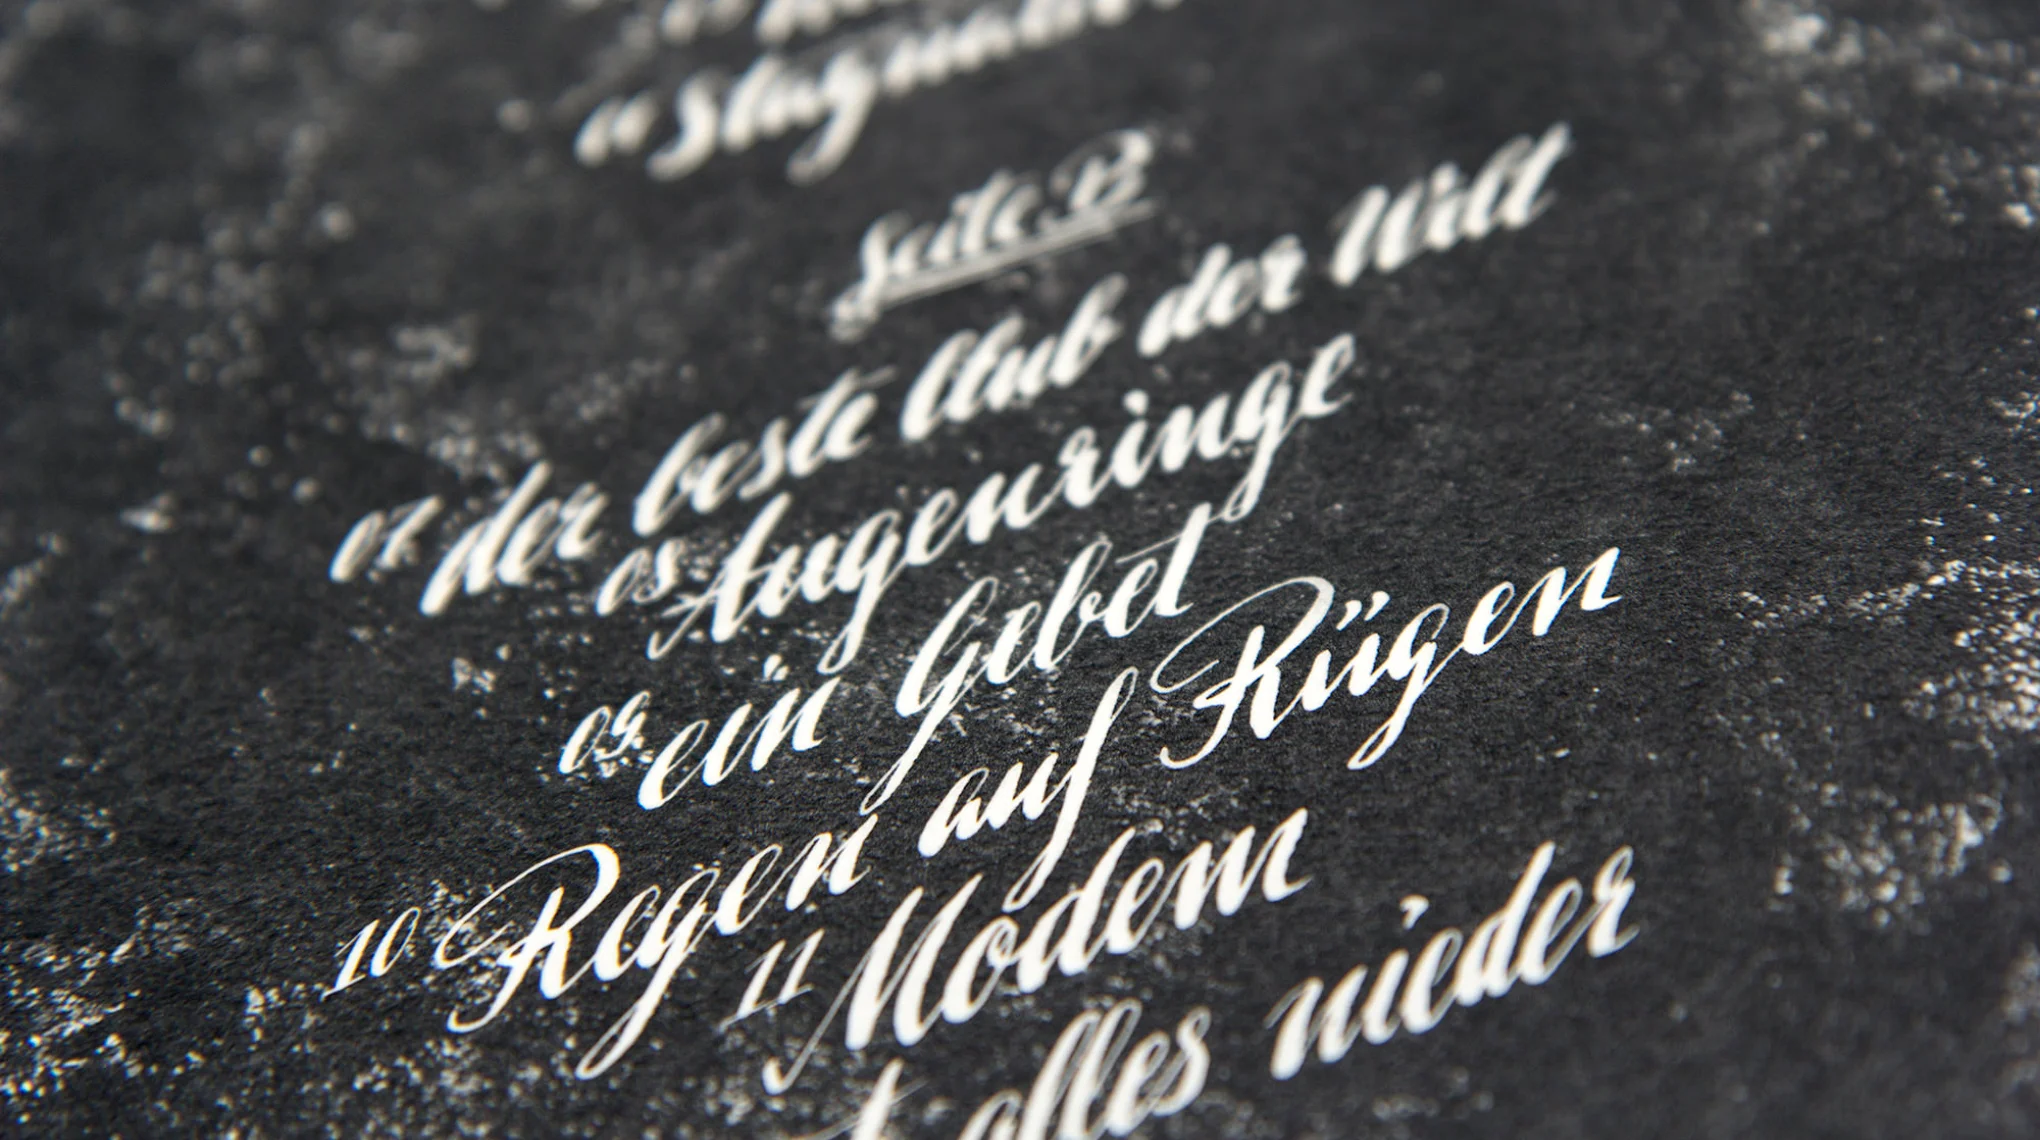 Seite B
07. der beste Club der Welt
08 Augenringe
09. ein Gebet
10 Regen auf Rügen
11 Modem
alles nieder